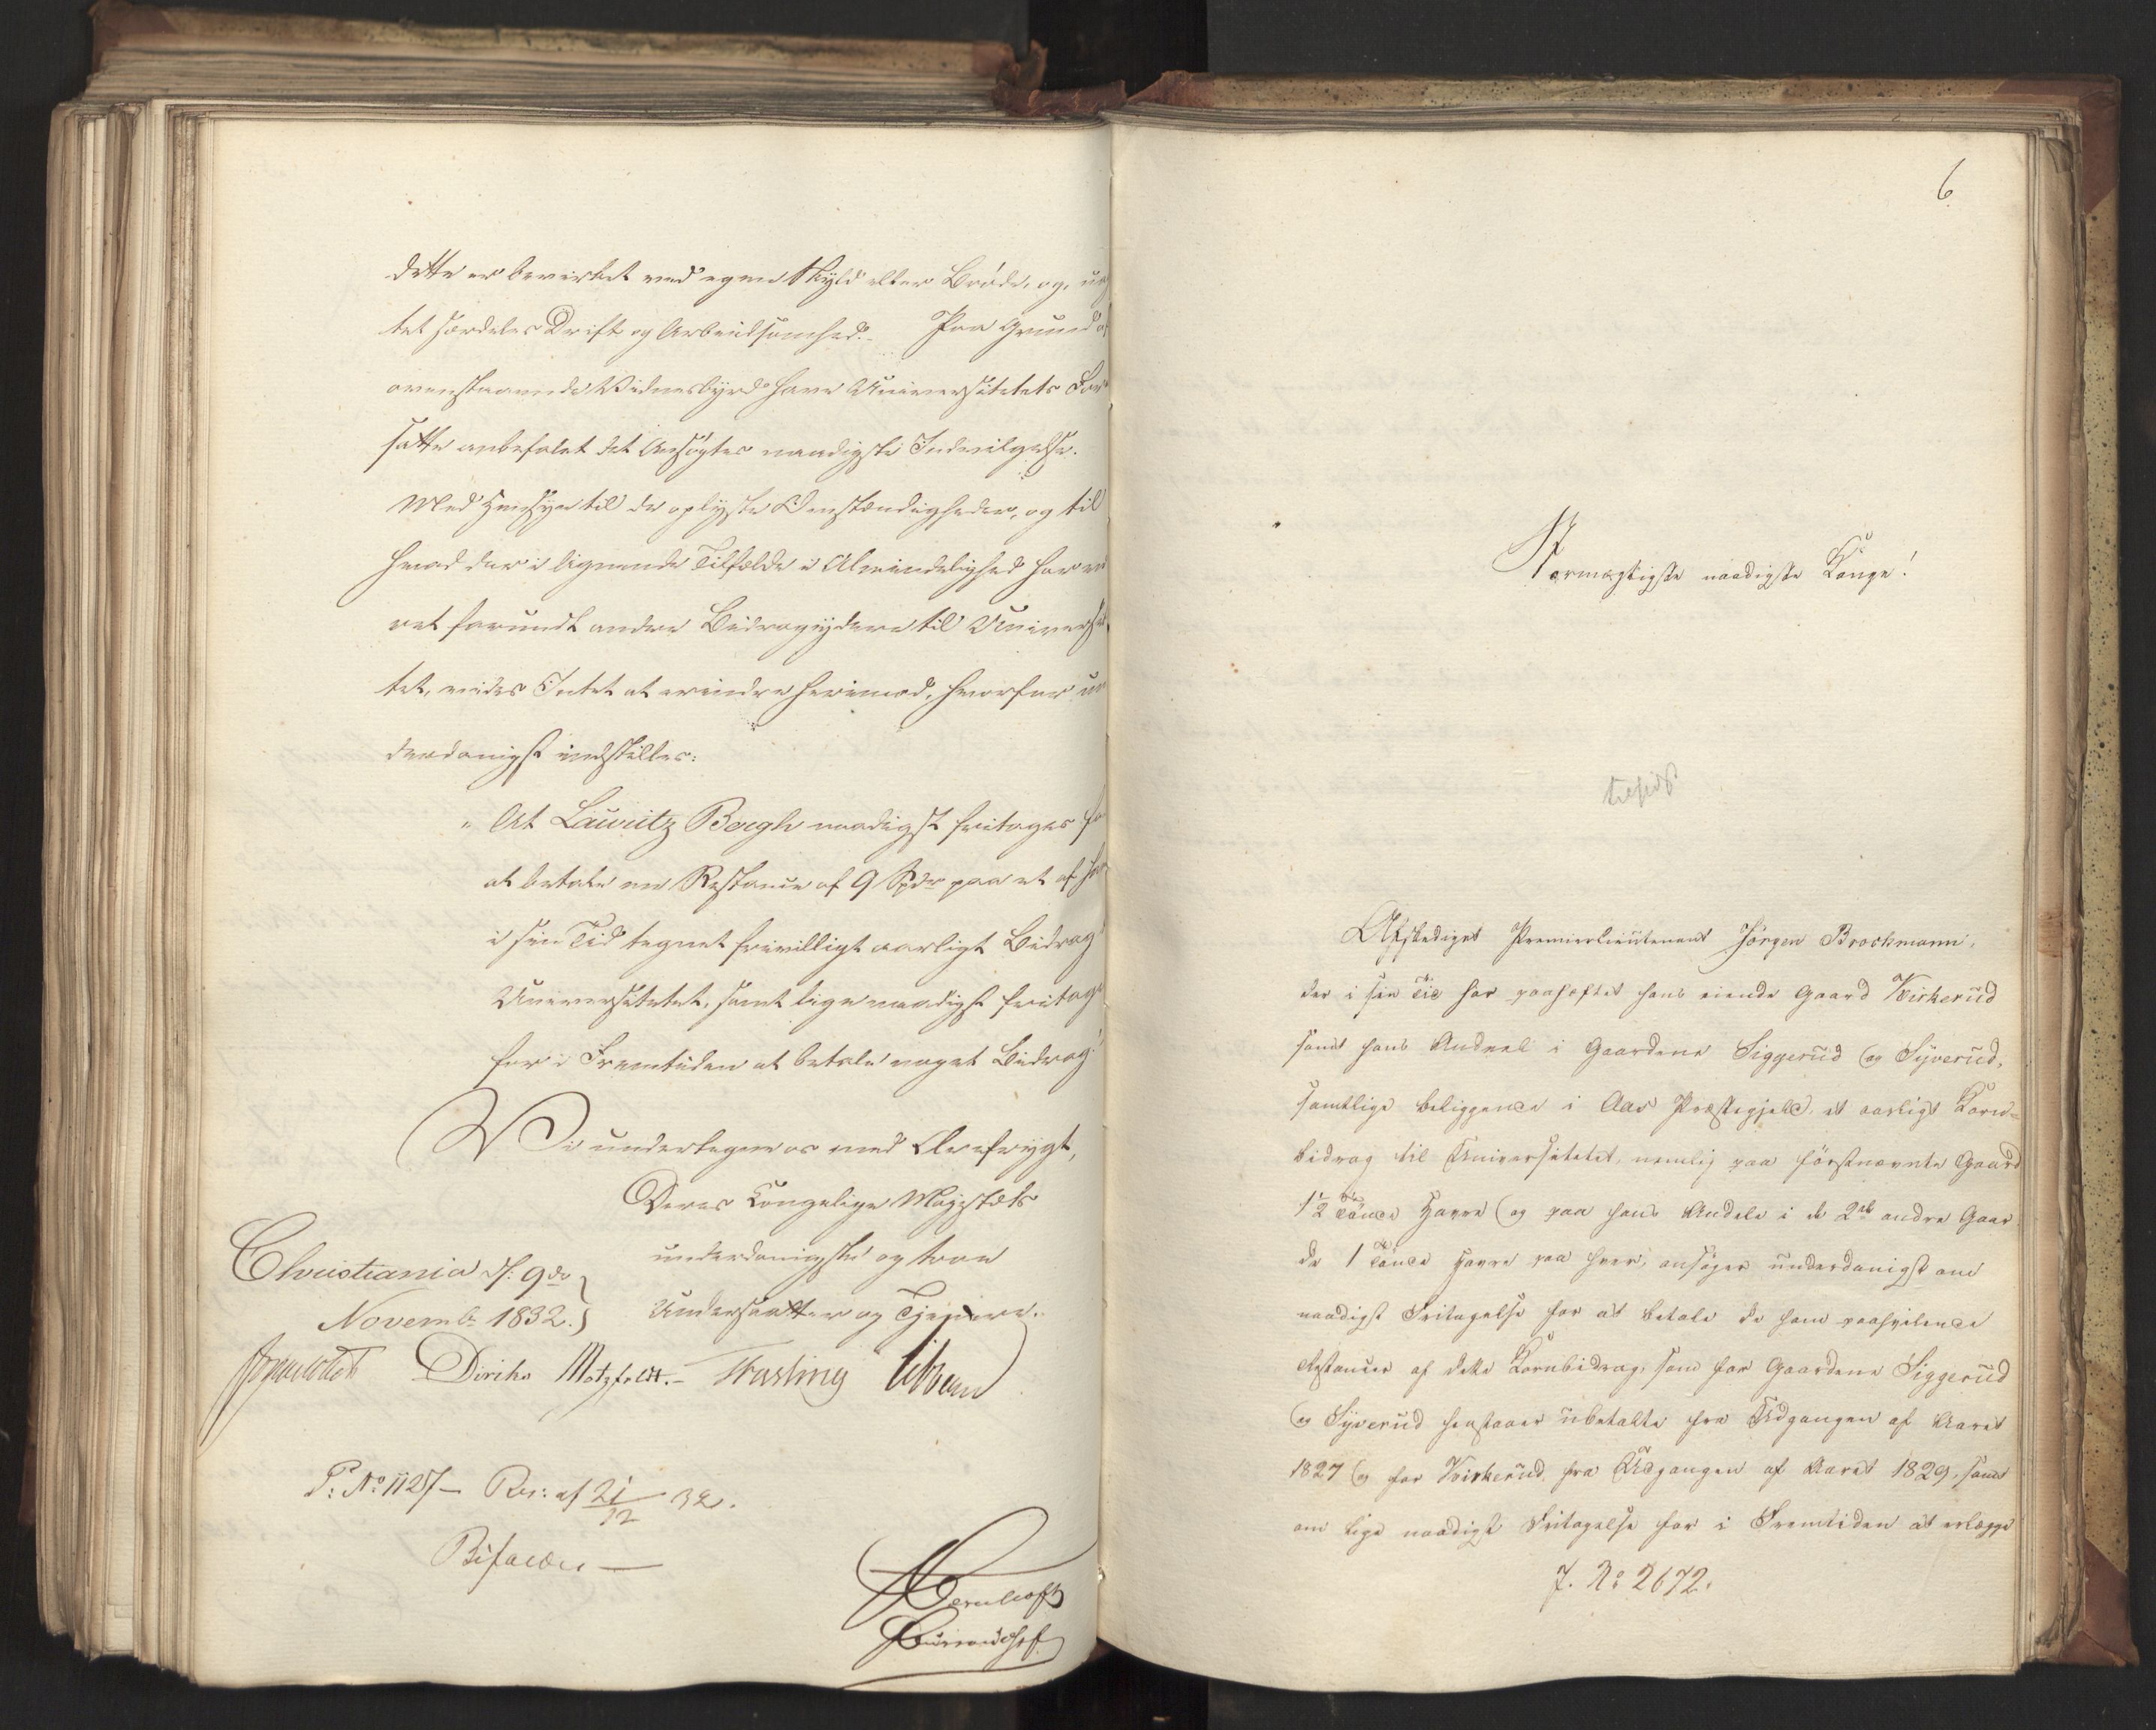 dette er bevirket ved egen Skyld eller Bröde, og, uag
tet særdeles Drift og Arbeidsomhed. Paa Grund af
ovenstaaende Vidnesbyrd have Universitetets Fore
satte anbefalet det Ansøgtes naadigste Indvilgelse.
Med Hensyn til de oplyste Omstændigheder, og til
hvad der i lignende Tilfælde i Almindelighed har væ
ret forundt andre Bidragydere til Universite
tet, vides Intet at erindre herimod, hvorfor un
derdanigst indstilles:
"At Lauritz Bergh naadigst fritages for
at betale en Restance af 9 Spdr paa et af ham
i sin Tid tegnet frivilligt aarligt Bidrag
Universitetet, samt lige naadigst fritages
for i Fremtiden at betale noget Bidrag."
Vi undertegne os med Ærefrygt,
Deres Kongelige Majestæts
underdanigste og troe
Undersaatter og Tjenere.
Christiania d: 9de
Novembr 1832.
Diriks Motzfeldt. Fasting
P: No 1127 — Res: af 21/12 32.
Bifaldes —
6
Stormægtigste naadigste Konge!
Afskediget Premierlieutenant Jörgen Brochmann,
der i sin Tid har paaheftet hans eiende Gaard Kvirkerud
samt hans Andeel i Gaardene Siggerud og Syverud,
samtlige beliggende i Aas Præstegjeld, et aarligt Korn-
bidrag til Universitetet, nemlig paa förstnævnte Gaard
1/2 Tönde Havre og paa hans Andele i de 2de andre Gaar
de 1 Tönde Havre paa hver, ansöger underdanigst om
naadigst Fritagelse for at betale de ham paahvilende
Restancer af dette Kornbidrag, som for Gaardene Siggerud
og Syverud henstaaer ubetalte fra Udgangen af Aaret
1827 og for Kvirkerud fra Udgangen af Aaret 1829, samt
om lige naadigst Fritagelse for i Fremtiden at erlægge
J. No 2672.